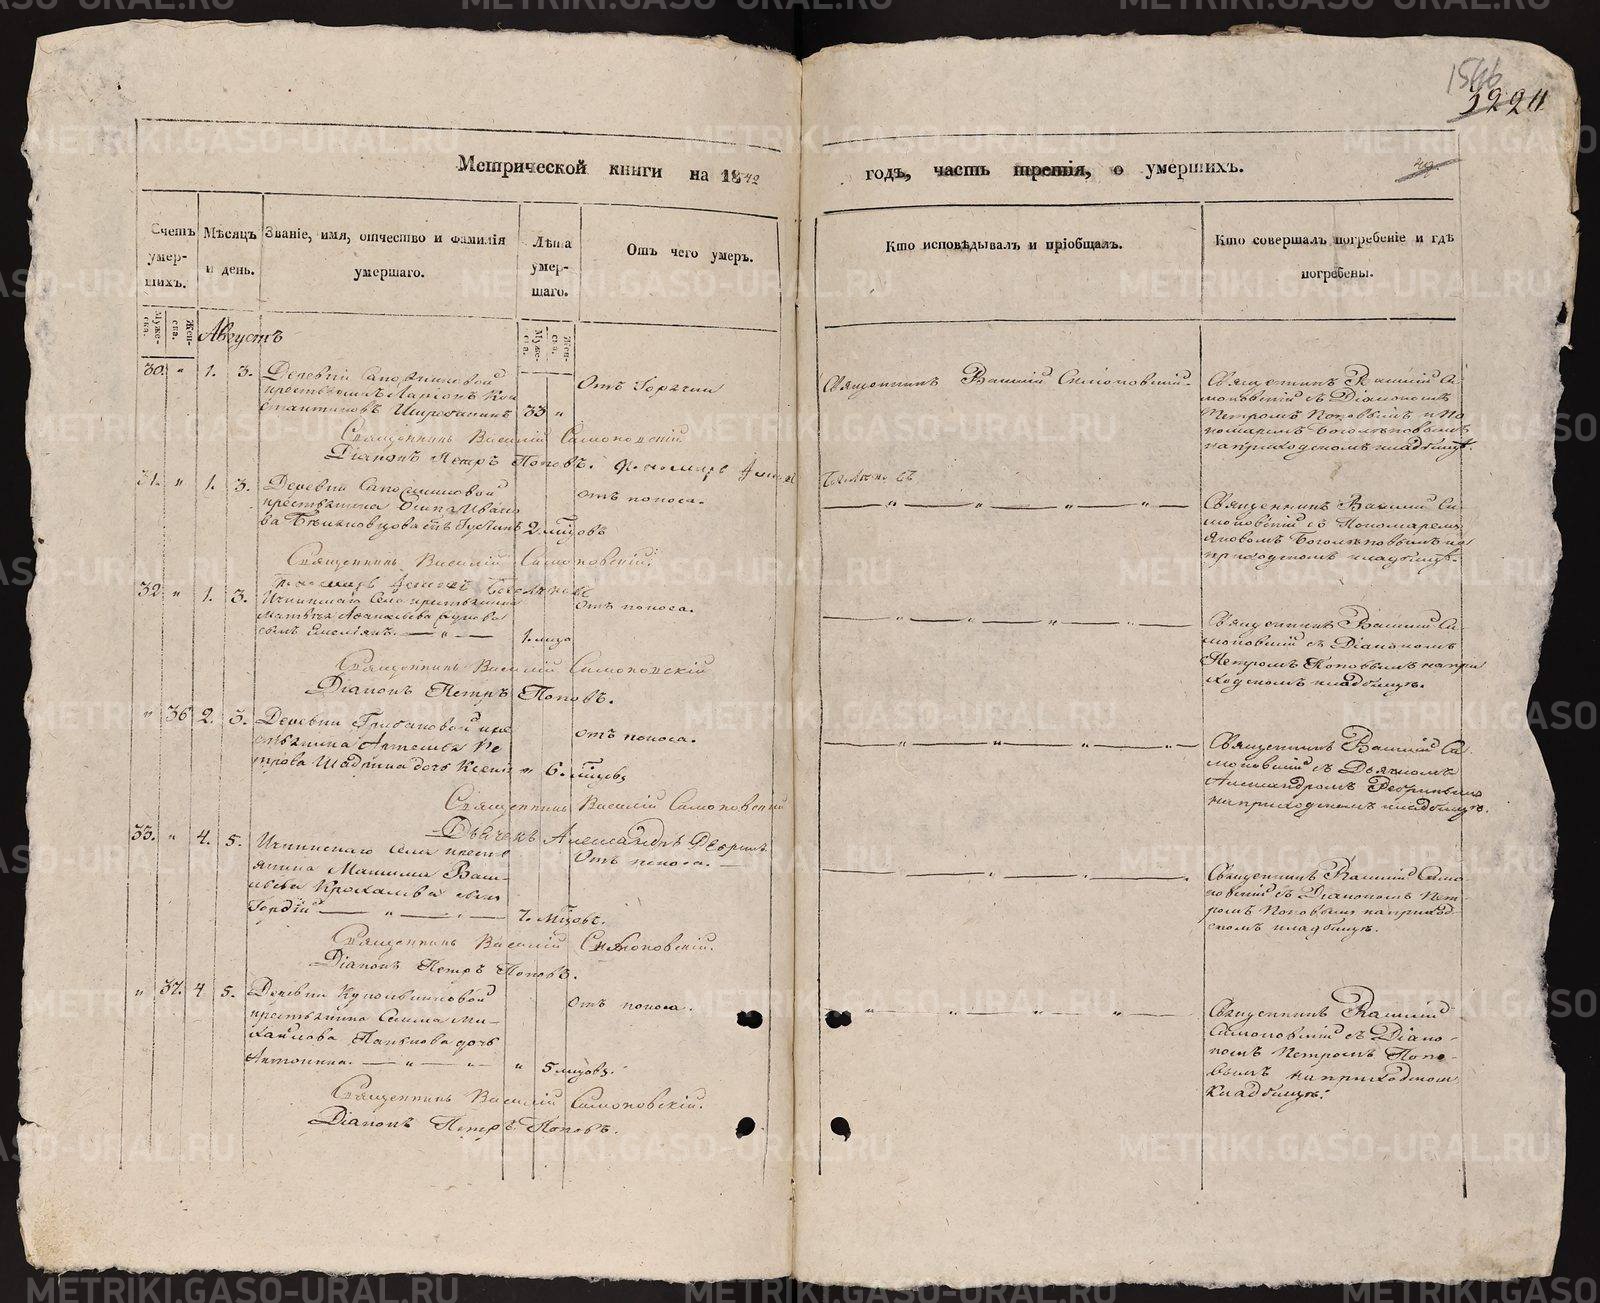 1546
1224
Метрической книги на 1842
годъ, часть третія, о умершихъ.
49
Счетъ умер-шихъ.
Мѣсяцъ и день.
Званіе, имя, отчество и фамилія умершаго.
Лѣта умер-шаго.
Отъ чего умеръ.
Кто исповѣдывалъ и пріобщалъ.
Кто совершалъ погребеніе и гдѣ погребены.
Муже-ска.
Жен-ска.
Августъ
Муже-ска.
Жен-ска.
30. " 1. 3. Деревни Сапожниковой
крестьянинъ Ларіонъ Кон
стантиновъ Широбакинъ 33 "
Отъ Горячки
Священникъ Василій Симоновскій.
Священникъ Василій Си
моновскій съ Діакономъ
Петромъ Поповымъ и По
номаремъ Боголѣповымъ
на приходскомъ кладбищѣ.
Священникъ Василій Симоновскій
Діаконъ Петръ Поповъ. Пономарь
31. " 1. 3. Деревни Сапожниковой
крестьянина Осипа Ивано
ва сынъ Густинъ 2 мѣсяцовъ
отъ поноса.
Священникъ Василій Си
моновскій съ Пономаремъ
Яковомъ Боголѣповымъ на
приходскомъ кладбищѣ.
Священникъ Василій Симоновскій.
Пономарь
32 " 1. 3. крестьянина
сынъ Емельянъ. — " — 1. мѣсяца
отъ поноса.
Священникъ Василій Си
моновскій съ Діакономъ
Петромъ Поповымъ на при
ходскомъ кладбищѣ.
Священникъ Василій Симоновскій
Діаконъ Петръ Поповъ.
" 36 2. 3. Деревни Грибановой кре
стьянина Артемья Пе
трова Шадрина дочь Ксенія " 6. мѣсяцовъ
отъ поноса.
Священникъ Василій Си
моновскій съ Дьячкомъ
Александромъ
на приходскомъ кладбищѣ.
Священникъ Василій Симоновскій
Дьячекъ Александръ
33. " 4. 5. села кресть
янина Максима Васи
льева сынъ
Гордій — " — 7. мѣсяцовъ.
Отъ поноса. —
Священникъ Василій Симо
новскій съ Діакономъ Пет
ромъ Поповымъ на приход
скомъ кладбищѣ.
Священникъ Василій Симоновскій.
Діаконъ Петръ Поповъ.
" 37. 4 5. Деревни
крестьянина Саввы Ми
хайлова дочь
Антонина. — " — " 5 мѣсяцовъ.
отъ поноса.
Священникъ Василій
Симоновскій съ Діако-
номъ Петромъ Попо-
вымъ на приходскомъ
кладбищѣ.
Священникъ Василій Симоновскій.
Діаконъ Петръ Поповъ.
METRIKI.GASO-URAL.RU